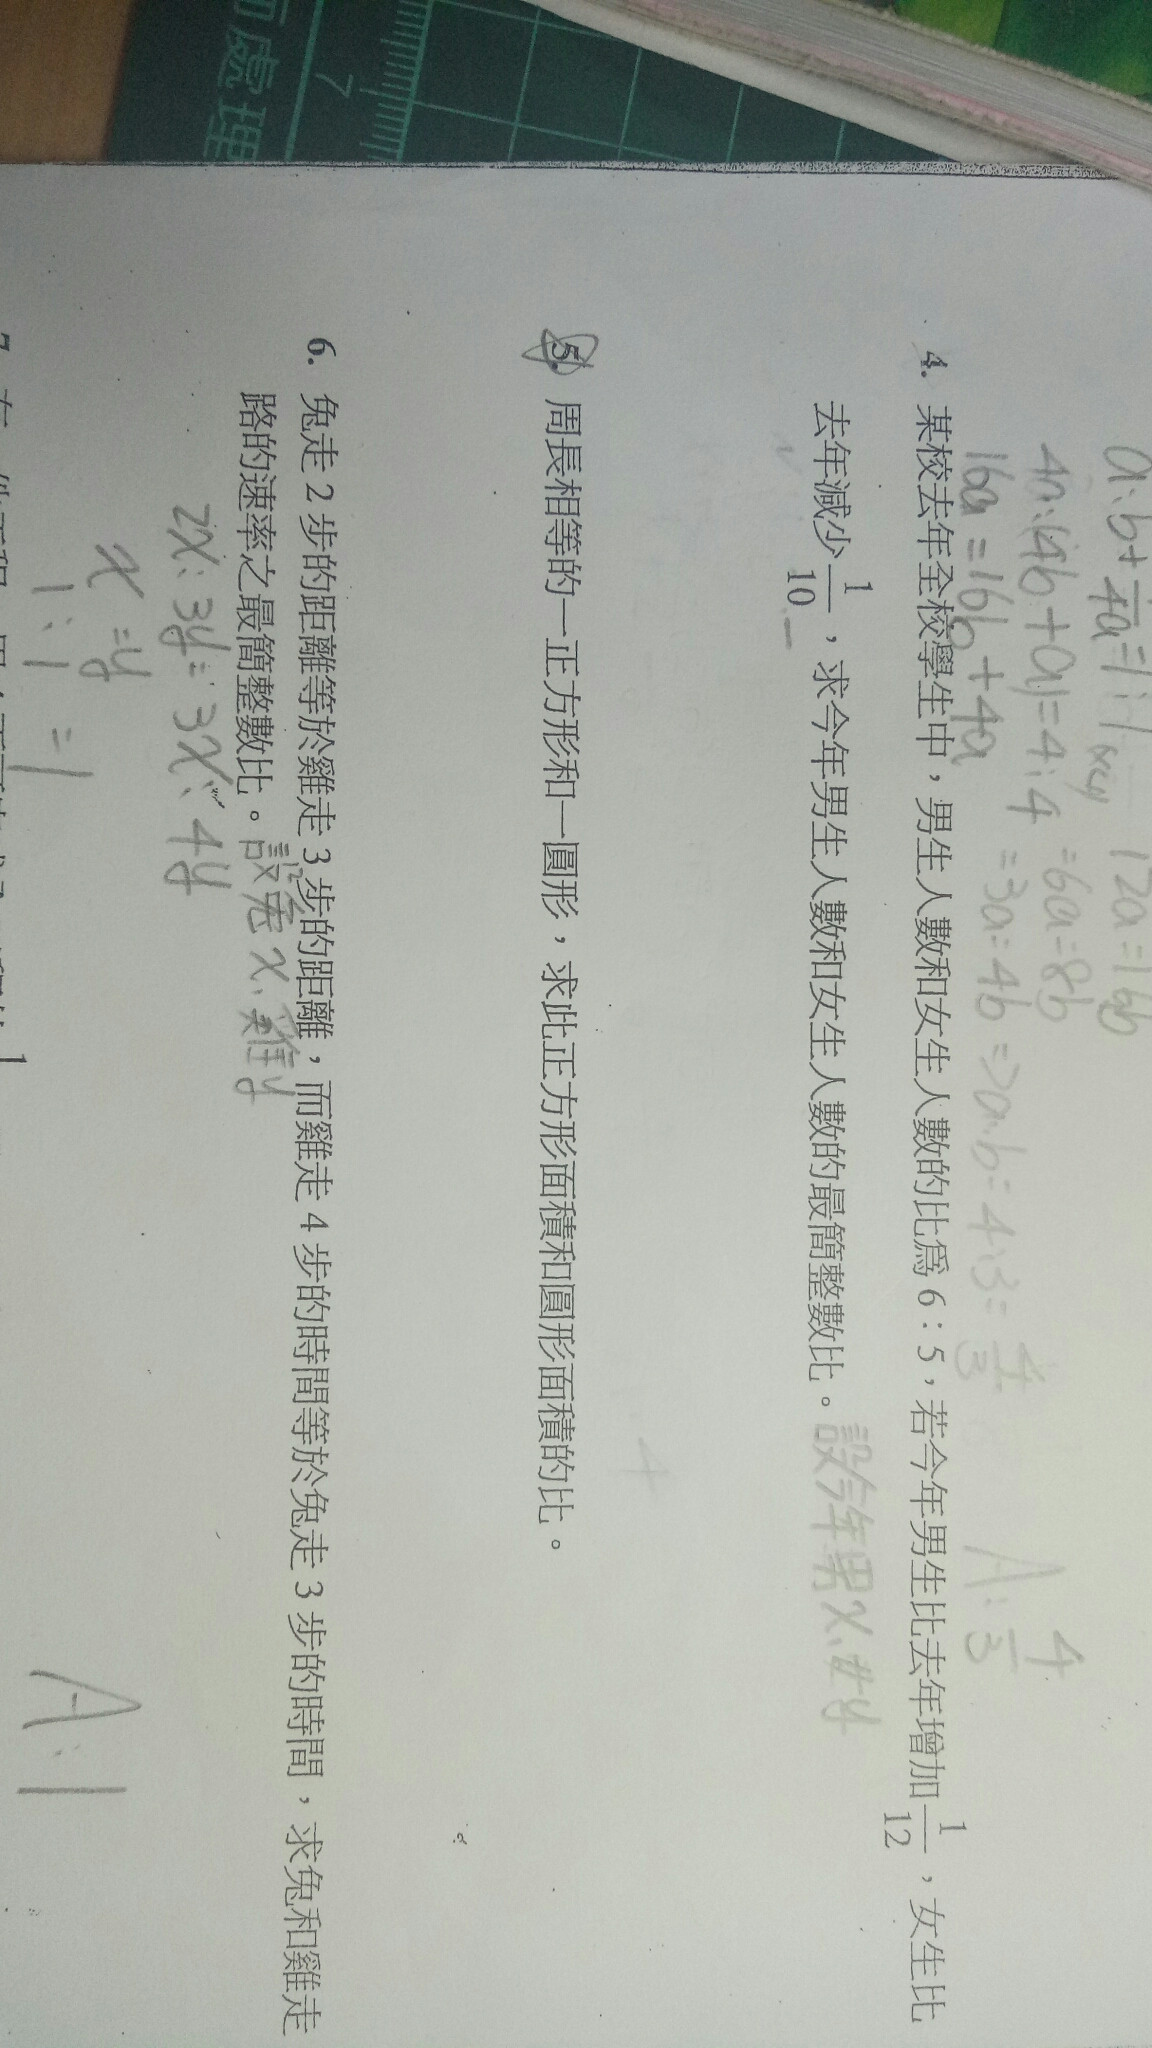 面處理
7
a:b+1/4a=1:1
12a=16b
4a:(4b+a)=4:4
=6a=8b
16a=16b+4a
=3a=4b=>a:b=4:3=4/3
A:4/3
4. 某校去年全校學生中，男生人數和女生人數的比為 6：5，若今年男生比去年增加1/12，女生比
去年減少1/10，求今年男生人數和女生人數的最簡整數比。
設今年男x、女y
4
5. 周長相等的一正方形和一圓形，求此正方形面積和圓形面積的比。
6. 兔走 2 步的距離等於雞走 3 步的距離，而雞走 4 步的時間等於兔走 3 步的時間，求兔和雞走
路的速率之最簡整數比。
設兔x、雞y
2x:3y=3x:4y
x=y
1:1=1
A:1